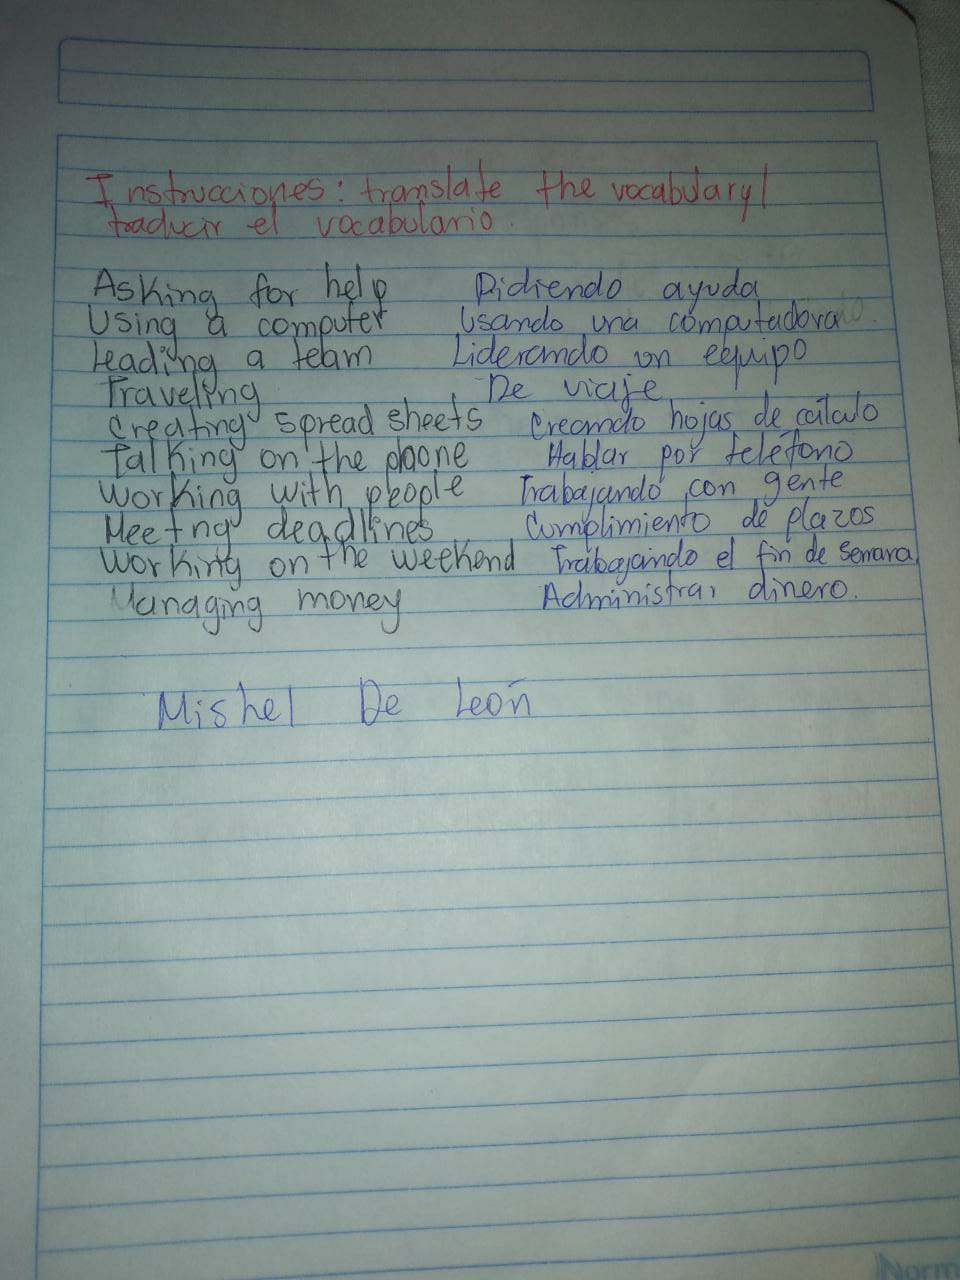 Instrucciones: translate the vocabulary/
traducir el vocabulario.
Asking for help Pidiendo ayuda
Using a computer Usando una computadora
Leading a team Liderando un equipo
Traveling De viaje
Creating spread sheets Creando hojas de cálculo
Talking on the phone Hablar por teléfono
Working with people Trabajando con gente
Meeting deadlines Cumplimiento de plazos
Working on the weekend Trabajando el fin de semana
Managing money Administrar dinero.
Mishel De León
Norm